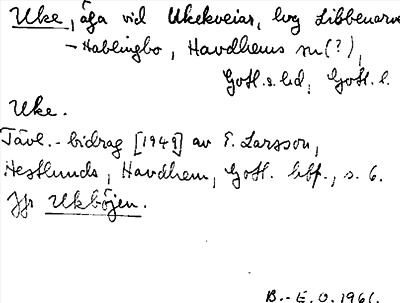 Uke, äga vid Ukekveiar, hvg Libbenarve
– Hablingbo, Havdhems sn (?),
Gotl. s. hd, Gotl. l.
Uke.
Tävl.-bidrag [1949] av E. Larsson,
Hestlunds, Havdhem, Gotl. bbf., s. 6.
Jfr Ukböjen.
B.-E. O. 1961.